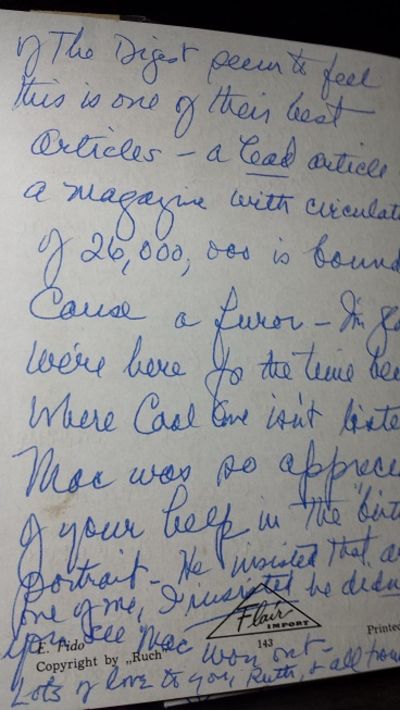 of The Digest seem to feel
this is one of their best
articles – a lead article
a magazine with circulat
of 26,000,000 is bound
cause a furor – I'm g
we're here for the time be
where Cool isn't liste
Mac was so apprec
of your help in The birt
portrait – He insisted that
one of me, I insisted he didn
you see Mac won out –
Lots of love to you, Ruth, & all from
E. Pido
Copyright by „Ruch"
Flair
IMPORT
143
Printed